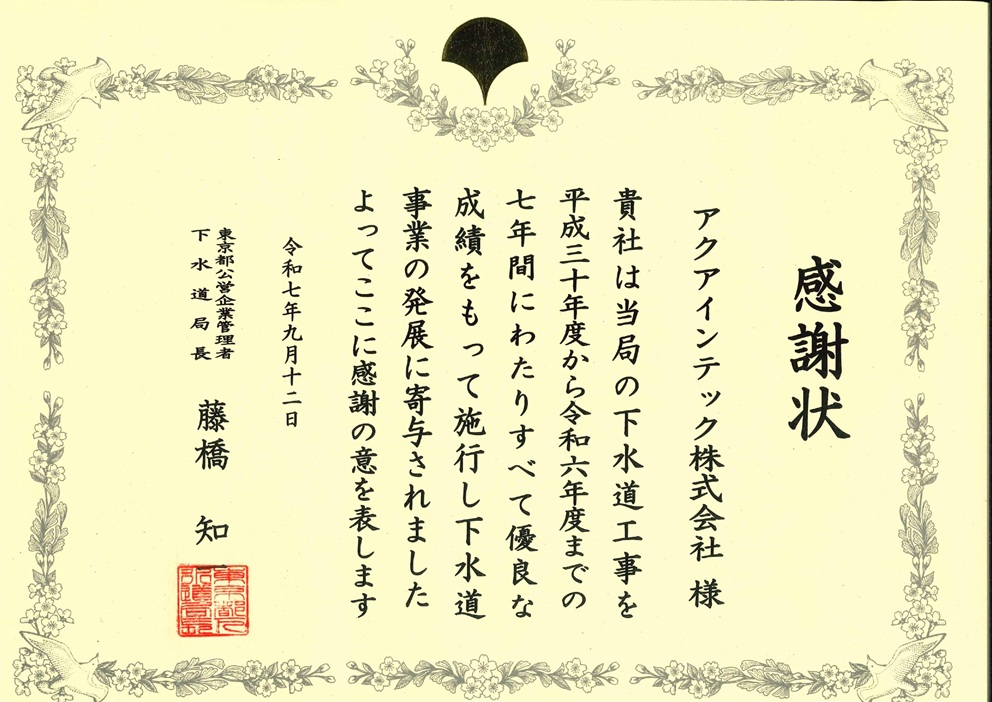 感謝状
アクアインテック株式会社 様
貴社は当局の下水道工事を
平成三十年度から令和六年度までの
七年間にわたりすべて優良な
成績をもって施行し下水道
事業の発展に寄与されました
よってここに感謝の意を表します
令和七年九月十二日
東京都公営企業管理者
下水道局長
藤橋 知